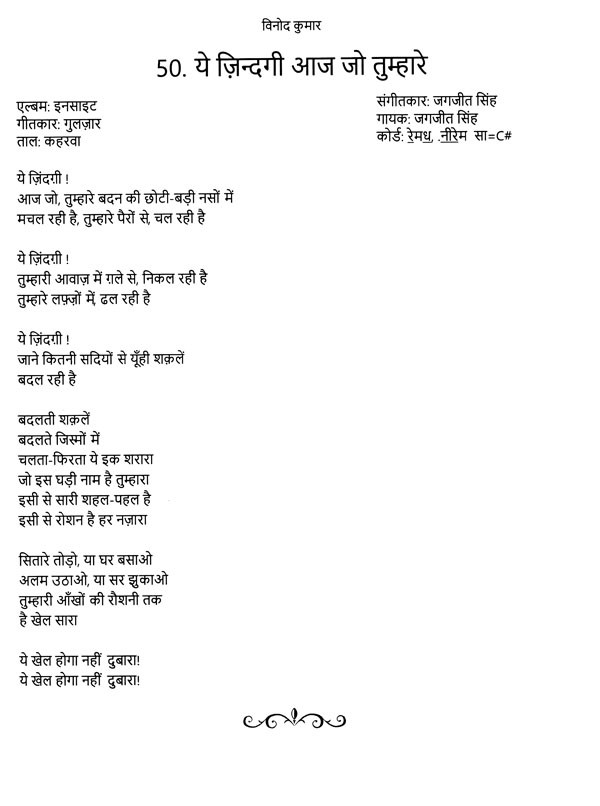 विनोद कुमार
50. ये ज़िन्दगी आज जो तुम्हारे
एल्बम: इनसाइट
गीतकार: गुलज़ार
ताल: कहरवा
संगीतकार: जगजीत सिंह
गायक: जगजीत सिंह
कोर्ड: रेमध, .नीरेम सा=C#
ये ज़िंदग़ी !
आज जो, तुम्हारे बदन की छोटी-बड़ी नसों में
मचल रही है, तुम्हारे पैरों से, चल रही है
ये ज़िंदग़ी !
तुम्हारी आवाज़ में ग़ले से, निकल रही है
तुम्हारे लफ़्ज़ों में, ढल रही है
ये ज़िंदग़ी !
जाने कितनी सदियों से यूँही शक़लें
बदल रही है
बदलती शक़लें
बदलते जिस्मों में
चलता-फिरता ये इक शरारा
जो इस घड़ी नाम है तुम्हारा
इसी से सारी शहल-पहल है
इसी से रोशन है हर नज़ारा
सितारे तोड़ो, या घर बसाओ
अलम उठाओ, या सर झुकाओ
तुम्हारी आँखों की रौशनी तक
है खेल सारा
ये खेल होगा नहीं दुबारा!
ये खेल होगा नहीं दुबारा!